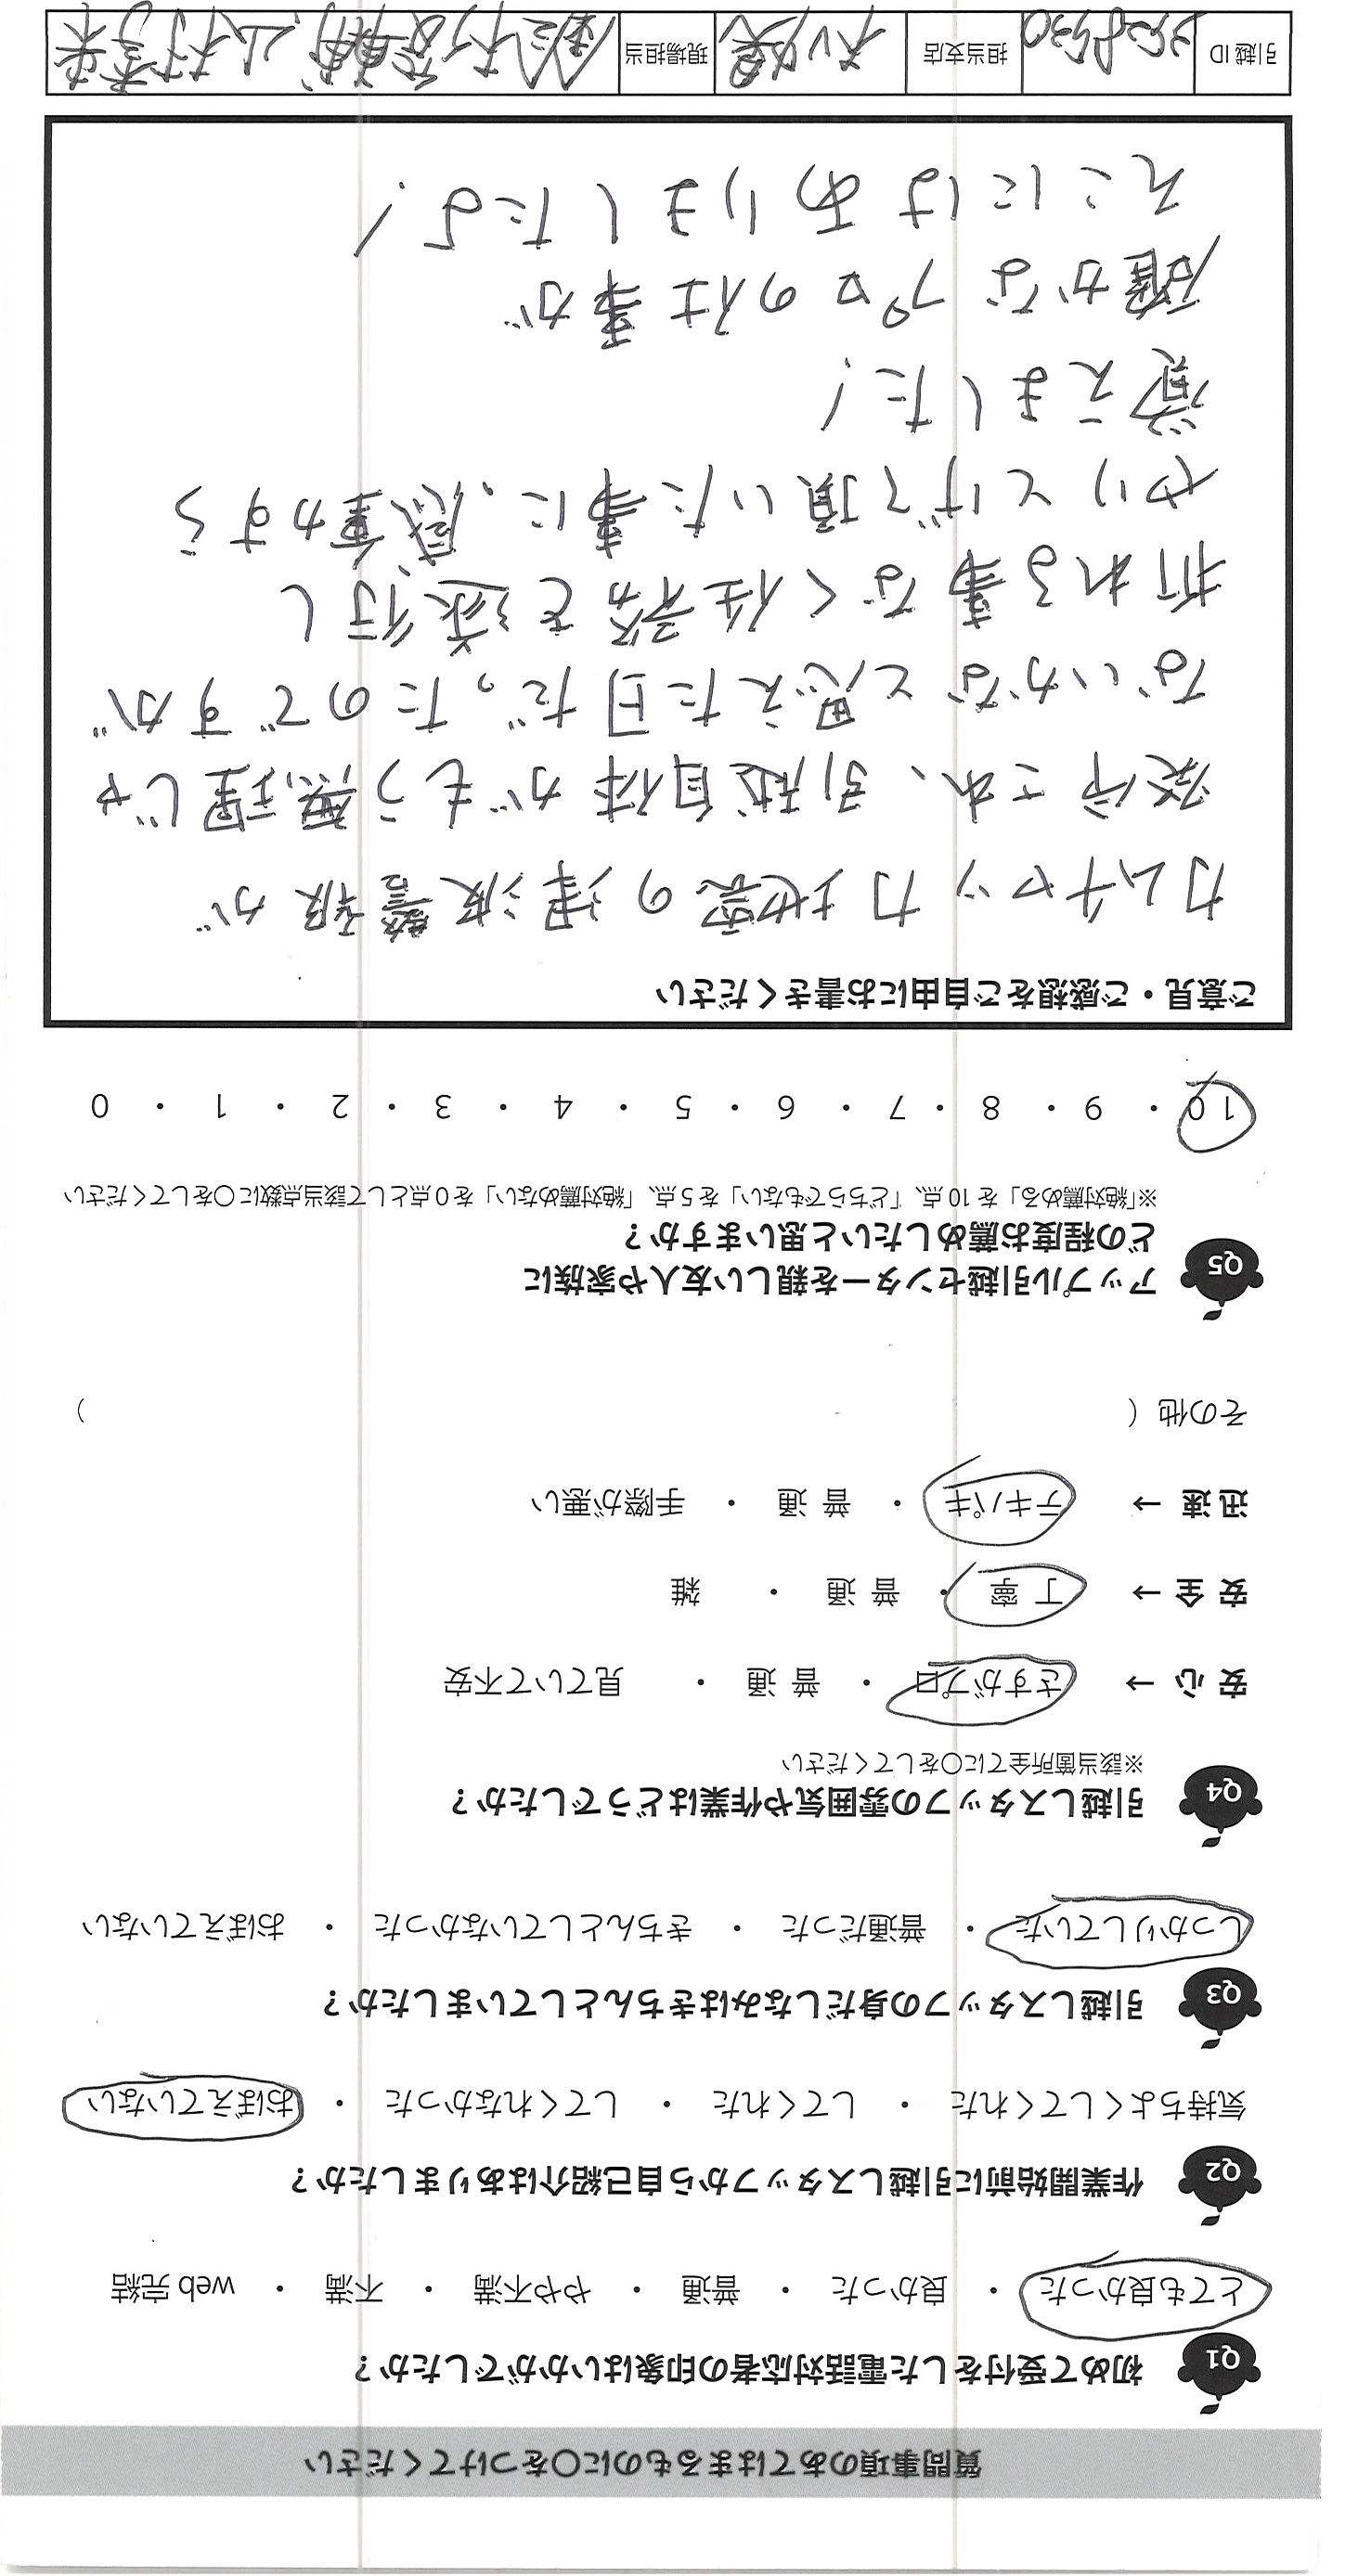 質問事項のあてはまるものに〇をつけてください
Q1 初めて受付をした電話対応者の印象はいかがでしたか？
とても良かった ・ 良かった ・ 普通 ・ やや不満 ・ 不満 ・ web 完結
Q2 作業開始前に引越しスタッフから自己紹介はありましたか？
気持ちよくしてくれた ・ してくれた ・ してくれなかった ・ おぼえていない
Q3 引越しスタッフの身だしなみはきちんとしていましたか？
しっかりしていた ・ 普通だった ・ きちんとしていなかった ・ おぼえていない
Q4 引越しスタッフの雰囲気や作業はどうでしたか？
※該当箇所全てに〇をしてください
安 心 → さすがプロ ・ 普 通 ・ 見ていて不安
安 全 → 丁 寧 ・ 普 通 ・ 雑
迅 速 → テキパキ ・ 普 通 ・ 手際が悪い
その他（ ）
Q5 アップル引越センターを親しい友人や家族に
どの程度お薦めしたいと思いますか？
※「絶対薦める」を 10 点、「どちらでもない」を 5 点、「絶対薦めない」を 0 点として該当点数に〇をしてください
10 ・ 9 ・ 8 ・ 7 ・ 6 ・ 5 ・ 4 ・ 3 ・ 2 ・ 1 ・ 0
ご意見・ご感想をご自由にお書きください
カムチャッカ地震の津波警報が
発令され、引越自体がもう無理じゃ
ないかなと思えた日だったのですが
折れる事なく任務を遂行し
やりとげて頂いた事に、感動すら
覚えました！
確かなプロの仕事が
そこにはありましたよ！
引越 ID 担当支店 現場担当